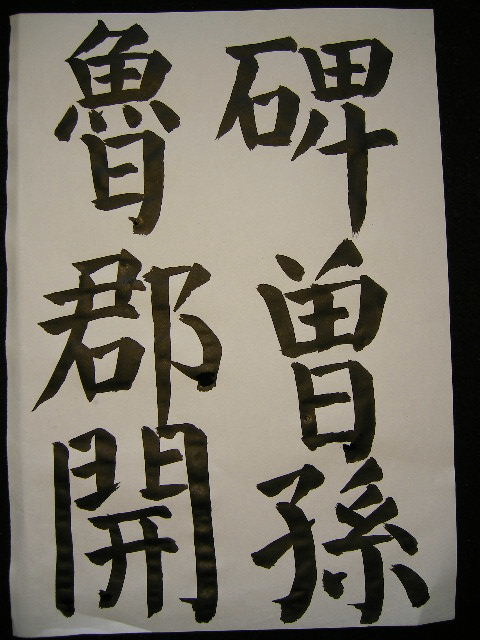 碑曽孫
魯郡開